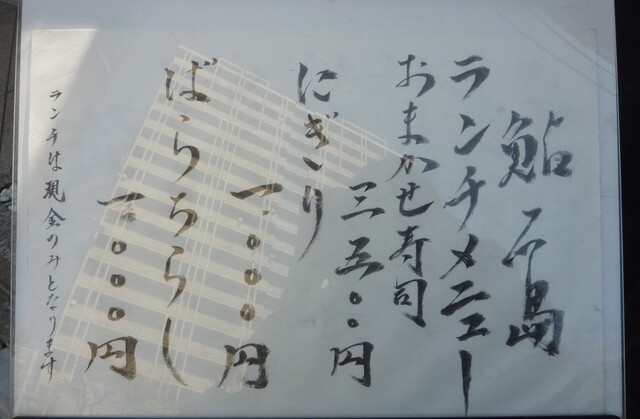 鮎 島
ランチメニュー
おまかせ寿司
三五〇〇円
にぎり
一〇〇〇円
ばらちらし
一〇〇〇円
ランチは現金のみとなります